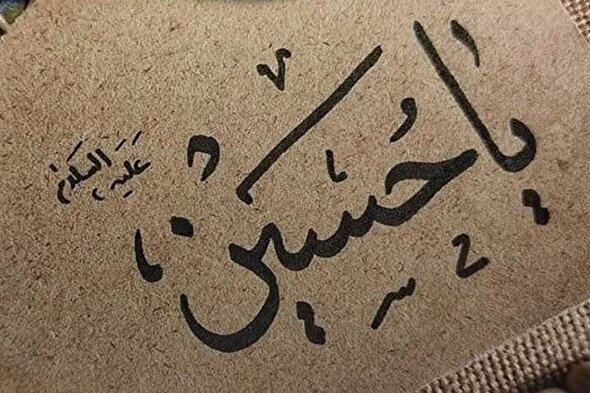 يا حُسَين
عَلَيهِ السَلام